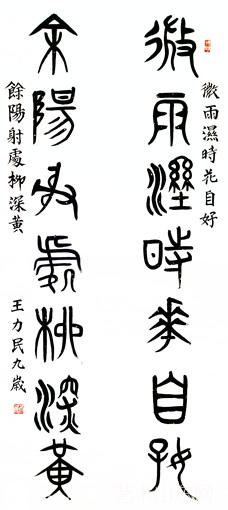 微雨濕時花自好
微雨溼時華自好
余陽射處柳深黃
餘陽射處柳深黃
王力民九歲